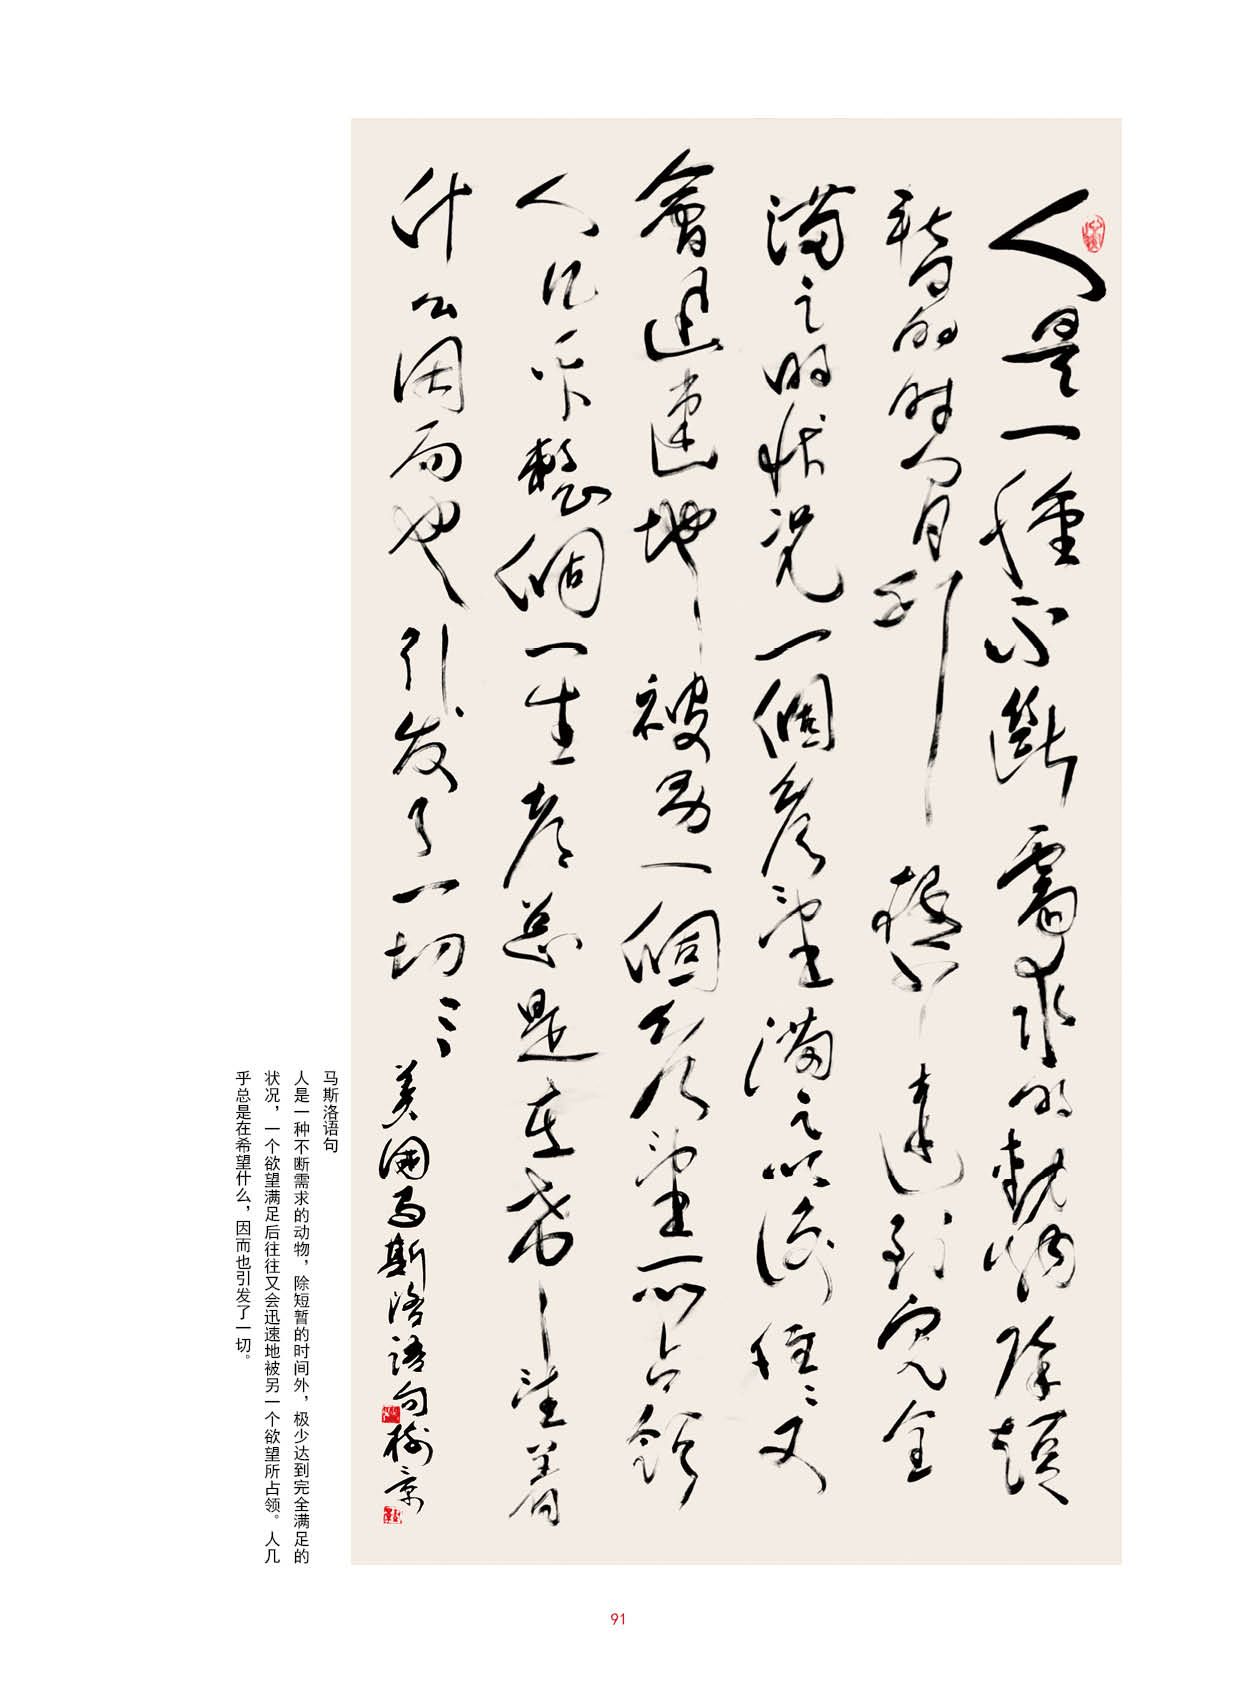 人是一種不斷需求的動物除短
暫的時間外極少達到完全
滿足的狀況一個欲望滿足以後往々又
會迅速地被另一個欲望所占領
人几乎整個一生都总是在希望着
什么因而也引发了一切
美國马斯洛語句
马斯洛语句
人是一种不断需求的动物，除短暂的时间外，极少达到完全满足的
状况，一个欲望满足后往往又会迅速地被另一个欲望所占领。人几
乎总是在希望什么，因而也引发了一切。
91